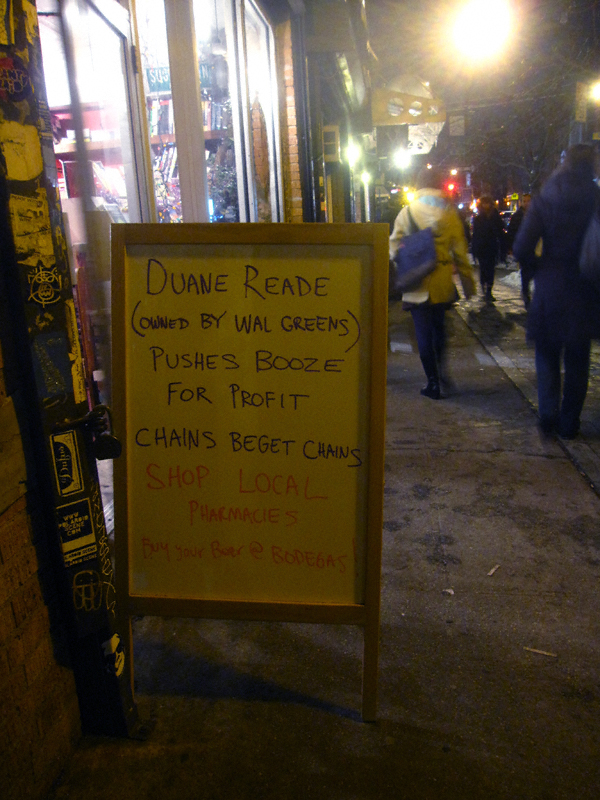 DUANE READE
(OWNED BY WAL GREENS)
PUSHES BOOZE
FOR PROFIT
CHAINS BEGET CHAINS
SHOP LOCAL
PHARMACIES
BUY your Beer @ BODEGAS!